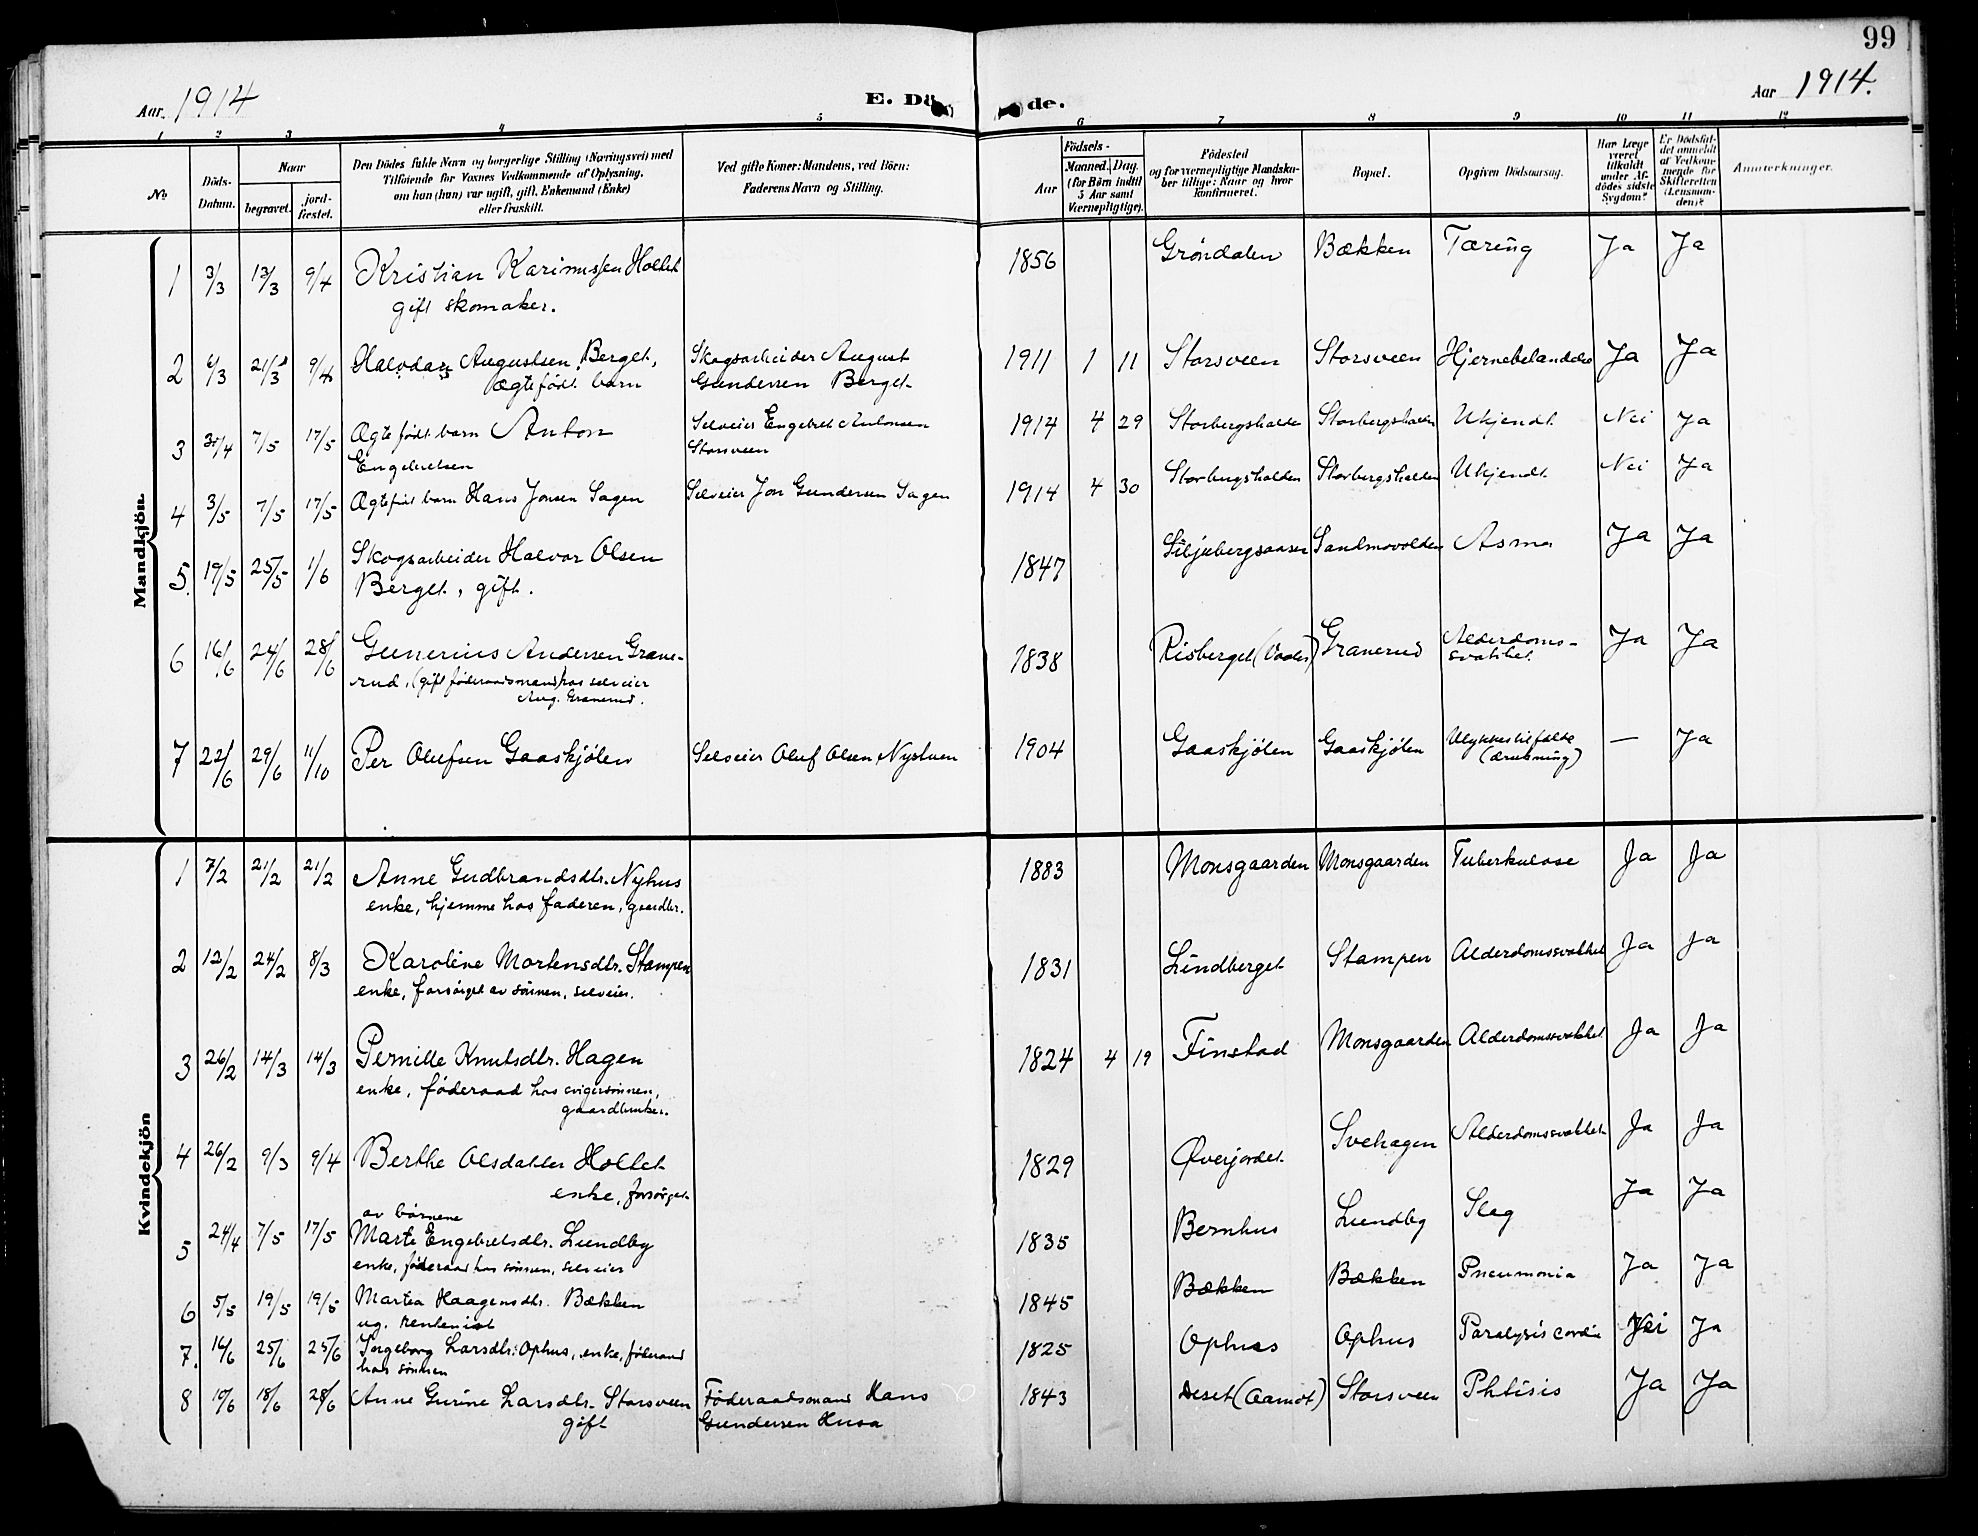 99
Aar 1914
E. Dö de.
Aar 1914.
1 2 3 4 5 6 7 8 9 10 11 12
No.
Döds-Datum.
Naar
begravet.
jord-fæstet.
Den Dödes fulde Navn og borgerlige Stilling (Næringsvei) med
Tilföiende for Voxnes Vedkommende af Oplysning,
om han (hun) var ugift, gift, Enkemand (Enke)
eller fraskilt.
Ved gifte Koner: Mandens, ved Börn:
Faderens Navn og Stilling.
Födsels-
Aar
Maaned. Dag.
(for Börn indtil
5 Aar samt
Værnepligtige).
Födested
og for værnepligtige Mandska-
ber tillige: Naar og hvor
konfirmeret.
Bopæl.
Opgiven Dödsaarsag.
Har Læge
været
tilkaldt
under Af-
dödes sidste
Sygdom?
Er Dödsfal-
det anmeldt
af Vedkom-
mende for
Skifteretten
(Lensman-
den)?
Anmærkninger.
Mandkjön.
1 3/3 13/3 9/4 Kristian Karinussen Holtet 1856 Grøndalen Bækken Tæring Ja Ja
gift skomaker.
2 6/3 21/3 9/4 Halvdan Augustsen Berget, Skogsarbeider August 1911 1 11 Storsveen Storsveen Ja Ja
ægtefødt barn Gundersen Berget
3 30/4 7/5 17/5 Ægtefødt barn Anton Selveier Engebret Antonsen 1914 4 29 Storbergshalden Storbergshalden Ukjendt Nei Ja
Engebretsen Storsveen
4 3/5 7/5 17/5 Ægtefødt barn Hans Jonsen Sagen Selveier Jon Gundersen Sagen 1914 4 30 Storbergshalden Storbergshalden Ukjendt Nei Ja
5. 19/5 25/5 1/6 Skogsarbeider Halvor Olsen 1847 Siljubergsaasen Sandmovolden Asma Ja Ja
Berget, gift.
6 16/6 24/6 28/6 Gunerius Andersen Grane- 1838 Risberget (Vaaler) Granerud Alderdoms- Ja Ja
rud, (gift føderaadsmand) hos selveier svakhet
Aug. Granerud.
7 22/6 29/6 11/10 Per Olufsen Gaaskjølen Selveier Oluf Olsen Nystuen 1904 Gaaskjølen Gaaskjølen Ulykkestilfælde — Ja
(drukning)
Kvindekjön
1 7/2 21/2 21/2 Anne Gudbrandsdtr. Nyhus 1883 Monsgaarden Monsgaarden Tuberkulose Ja Ja
enke, hjemme hos faderen, gaardbr.
2 12/2 24/2 8/3 Karoline Mortensdtr. Stampen 1831 Lindberget Stampen Alderdomssvakhet Ja Ja
enke, forsørget av sønnen, selveier.
3 26/2 14/3 14/3 Pernille Knutsdtr. Hagen 1824 4 19 Finstad Monsgaarden Alderdomssvakhet Ja Ja
enke, føderaad hos svigersønnen,
gaardbruker.
4 26/2 9/3 9/4 Berthe Olsdatter Holtet 1829 Øverjordet Svehagen Alderdomssvakhet Ja Ja
enke, forsørget
av børnene
5 24/4 7/5 17/5 Marte Engebretsdtr. Lundby 1835 Bernhus Lundby Slag Ja Ja
enke, føderaad hos sønnen, selveier
6 5/5 19/5 19/5 Martea Haagensdtr. Bækken 1845 Bækken Bækken Pneumonia Ja Ja
ug. rentenist
7. 16/6 25/6 25/6 Ingeborg Larsdtr. Ophus, enke, føderaad 1825 Ophus Ophus Paralysis cordis Nei Ja
hos sønnen
8 10/6 18/6 28/6 Anne Gurine Larsdtr. Storsveen Føderaadsmand Hans 1843 Deset (Aamot) Storsveen Phtisis Ja Ja
gift Gundersen Husa